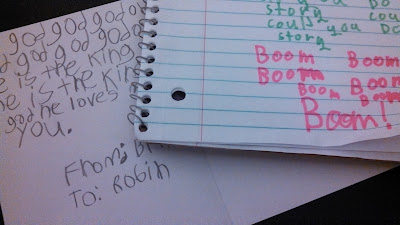 god god god god
god god god god
e is the king
e is the kin
god he loves
you.
From:
To: Robin
you Do
story cou
could you Do
story
Boom Boom
Boom
Boom Boom
Boom!